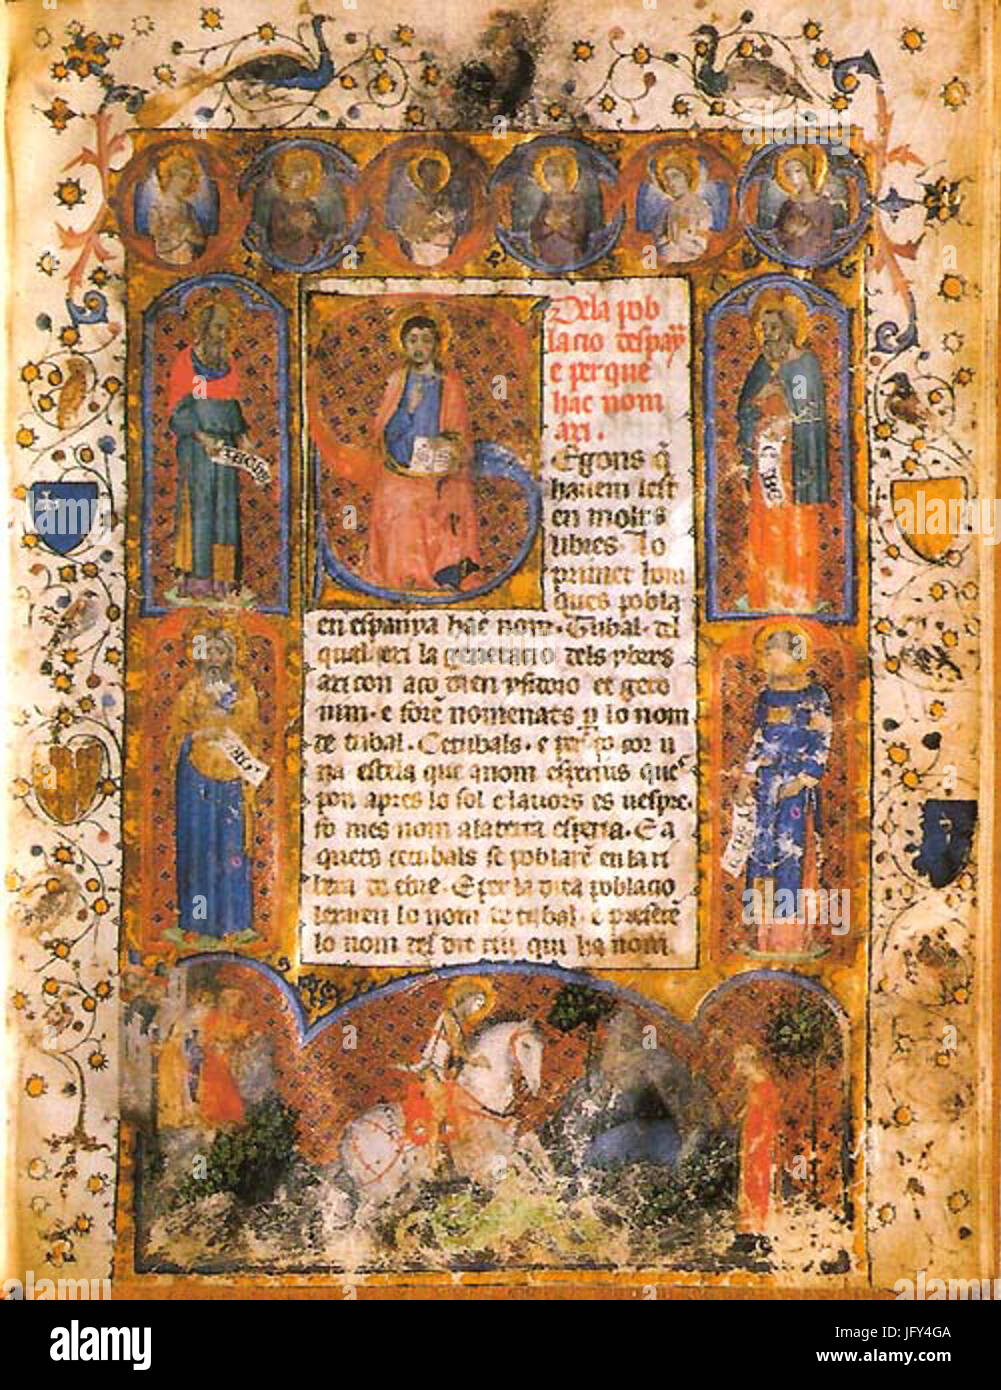 De la pob
lacio despany
e per que
hac nom
axi.
Egons q̃
hauem lest
en molts
libres. Lo
primer hom
ques pobla
en espanya hac nom. Tubal. del
qual exi la generacio dels ybers
axi con aço dien ysidoro et gero
nim. e forẽ nomenats p lo nom
de tubal. Cetubals. e per ço cor u
na estela que ha nom esperius ques
pon apres lo sol e lauors es uespre.
fo mes nom a la terra esperia. E a
quets cetubals se poblarẽ en la ri
bera de ebre. E per la dita poblacio
lexaren lo nom de tubal. e preserẽ
lo nom del dit riu qui ha nom
alamy
Image ID: JFY4GA
www.alamy.com